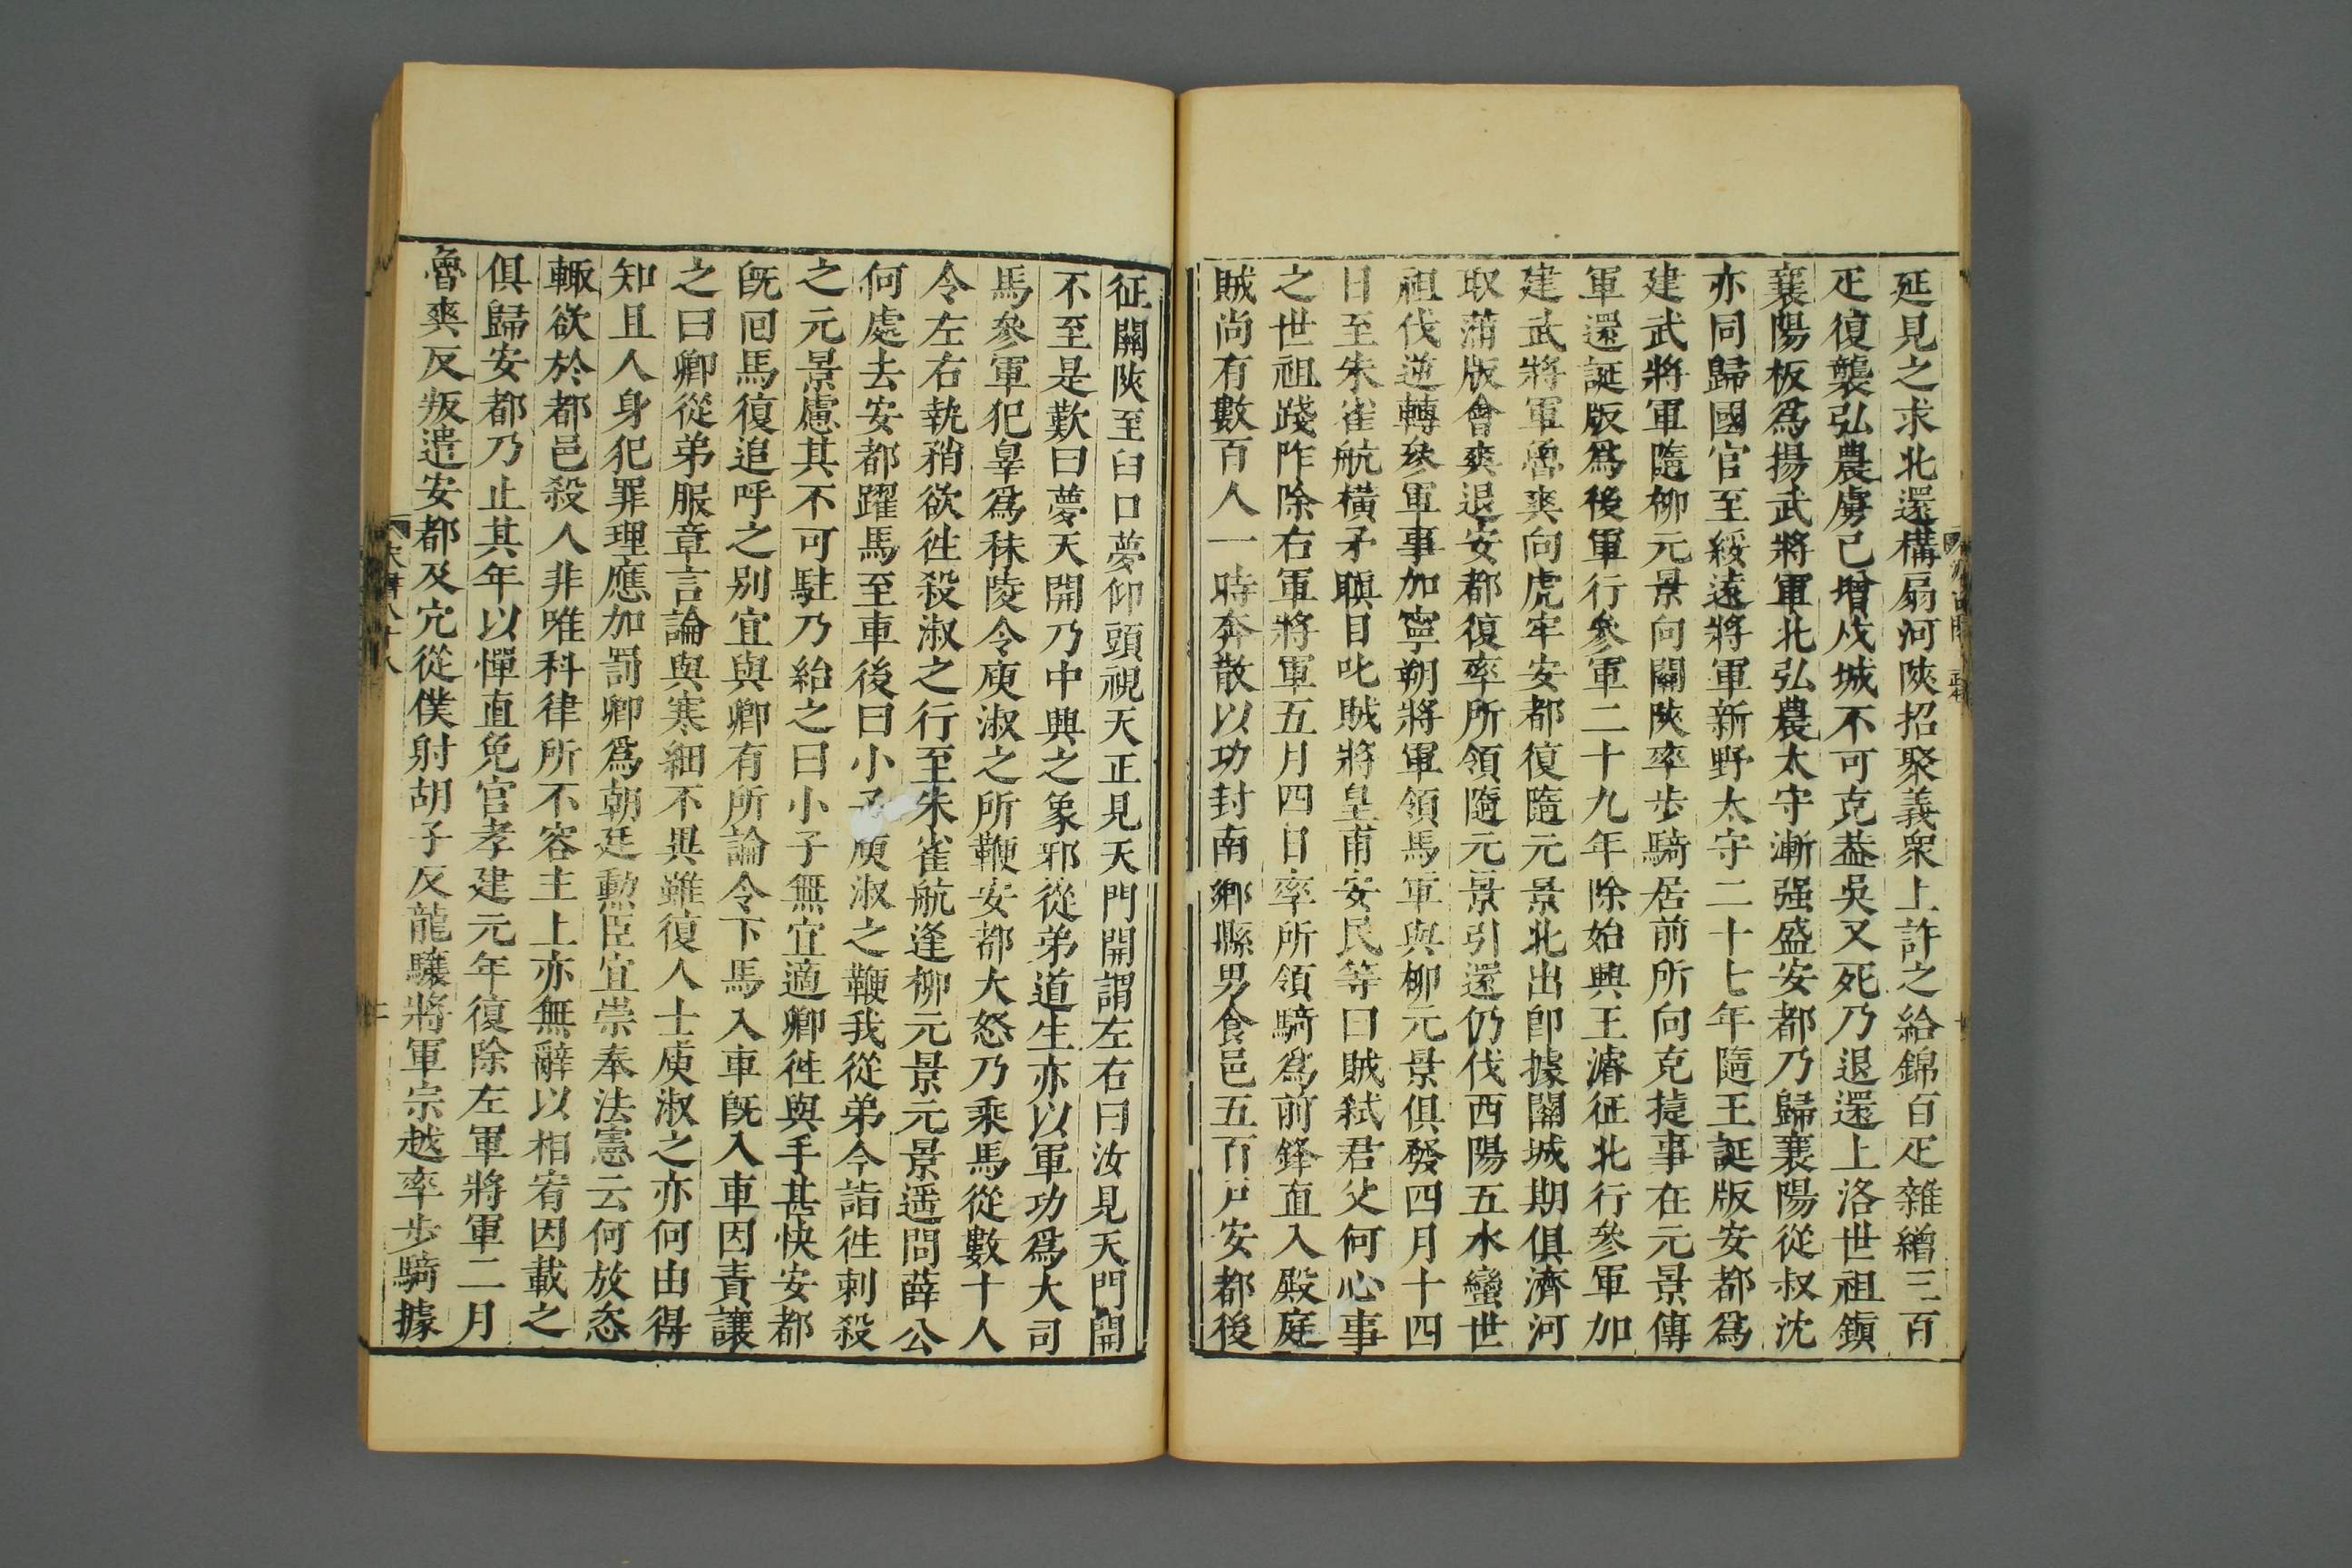 延見之求北還構扇河陝招聚義衆上許之給錦百疋雜繒三百
疋復襲弘農虜已增戍城不可克葢吳又死乃退還上洛世祖鎭
襄陽板爲揚武將軍北弘農太守漸强盛安都乃歸襄陽從叔沈
亦同歸國官至綏遠將軍新野太守二十七年隨王誕版安都爲
建武將軍隨柳元景向關陝率步騎居前所向克捷事在元景傳
軍還誕版爲後軍行參軍二十九年除始興王濬征北行參軍加
建武將軍魯爽向虎牢安都復隨元景北出卽據關城期俱濟河
取蒲版會爽退安都復率所領隨元景引還仍伐西陽五水蠻世
祖伐逆轉參軍事加寧朔將軍領馬軍與柳元景俱發四月十四
日至朱雀航橫矛瞋目叱賊將皇甫安民等曰賊弒君父何心事
之世祖踐阼除右軍將軍五月四日率所領騎爲前鋒直入殿庭
賊尚有數百人一時奔散以功封南鄉縣男食邑五百戸安都後
征關陝至臼口夢仰頭視天正見天門開謂左右曰汝見天門開
不至是歎曰夢天開乃中興之象邪從弟道生亦以軍功爲大司
馬參軍犯辠爲秣陵令庾淑之所鞭安都大怒乃乘馬從數十人
令左右執矟欲徃殺淑之行至朱雀航逢柳元景元景遥問薛公
何處去安都躍馬至車後曰小子庾淑之鞭我從弟今詣徃刺殺
之元景慮其不可駐乃紿之曰小子無宜適卿徃與手甚快安都
旣囘馬復追呼之别宜與卿有所論令下馬入車旣入車因責讓
之曰卿從弟服章言論與寒細不異雖復人士庾淑之亦何由得
知且人身犯罪理應加罰卿爲朝廷勲臣宜崇奉法憲云何放恣
輙欲於都邑殺人非唯科律所不容主上亦無辭以相宥因載之
俱歸安都乃止其年以憚直免官孝建元年復除左軍將軍二月
魯爽反叛遣安都及冗從僕射胡子反龍驤將軍宗越率步騎據
宋書八十八